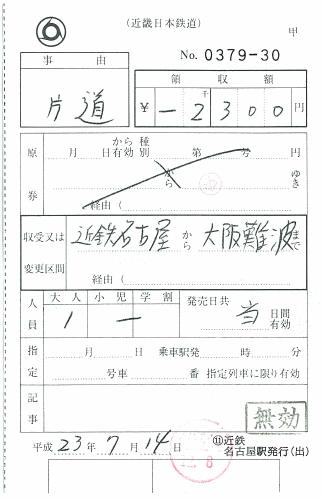 (近畿日本鉄道)
甲
No. 0379-30
事由
領収額
片道
千
¥ー2300円
原券
月 日から有効 種別 第 号 円
から ゆき
経由(
収受又は変更区間
近鉄名古屋から大阪難波まで
経由(
人員
大人 小児 学割
1 ー
発売日共 当 日間有効
指定
月 日 乗車駅発 時 分
号車 番 指定列車に限り有効
記事
無効
平成23年7月14日
⑪近鉄
名古屋駅発行(出)